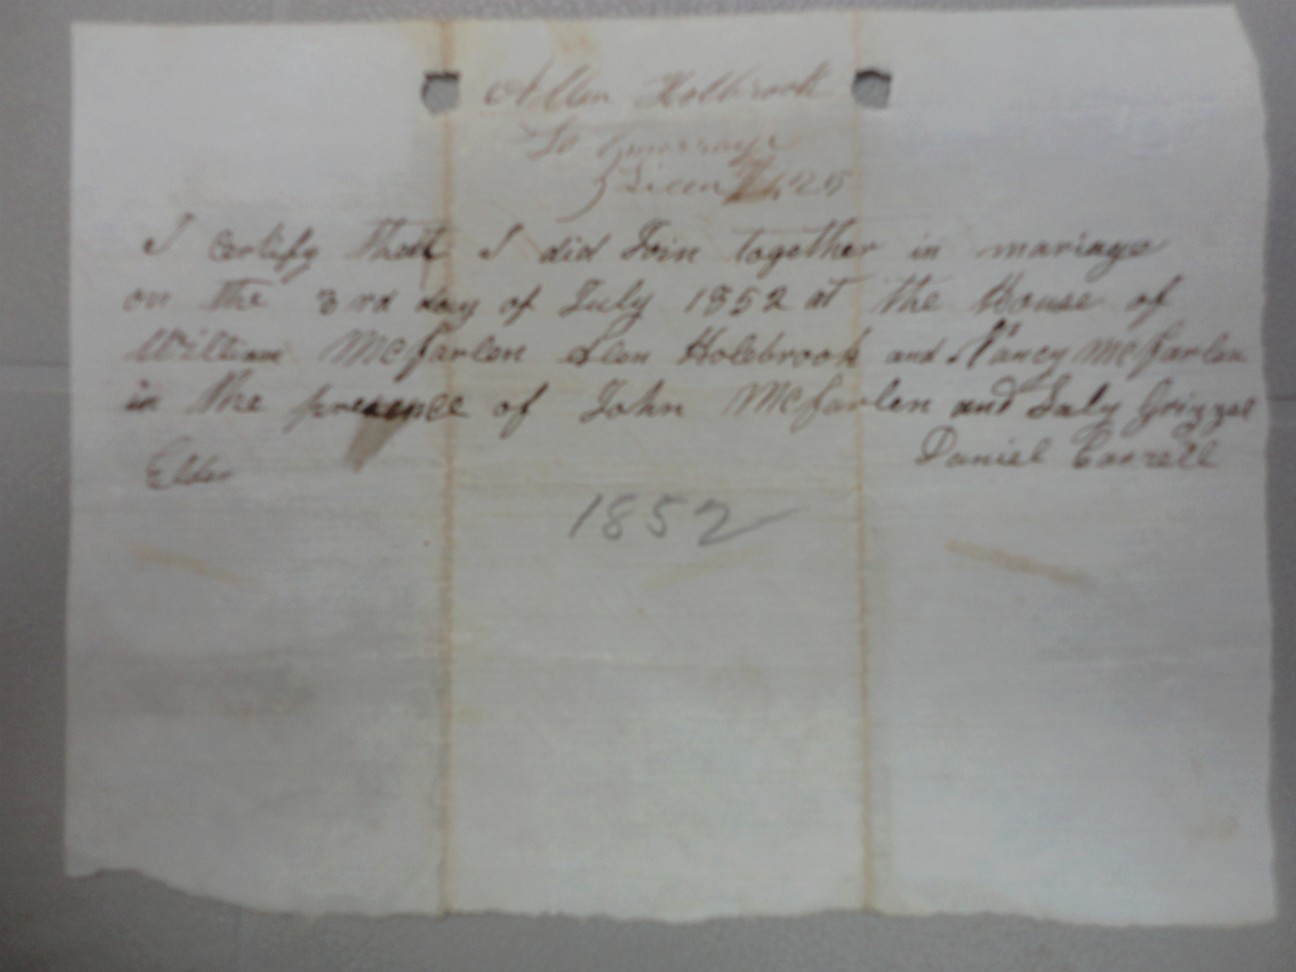 Allen Holbrook
To
Licen 25
I certify that I did Join together in mariage
on the 3rd day of July 1852 at the House of
William McFarlen Alen Holebrook and Nancy McFarlen
in the presence of John McFarlen and Saly Grizzel
Daniel Correll
Elder
1852